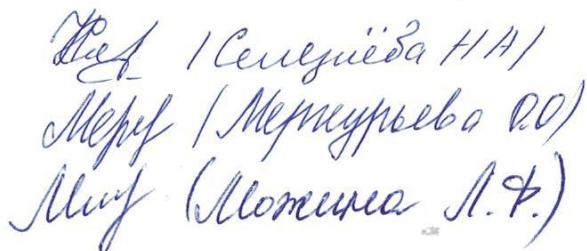 /Селезнёва Н А/
Мерк /Меркурьева О.О/
(Можина Л.Ф.)